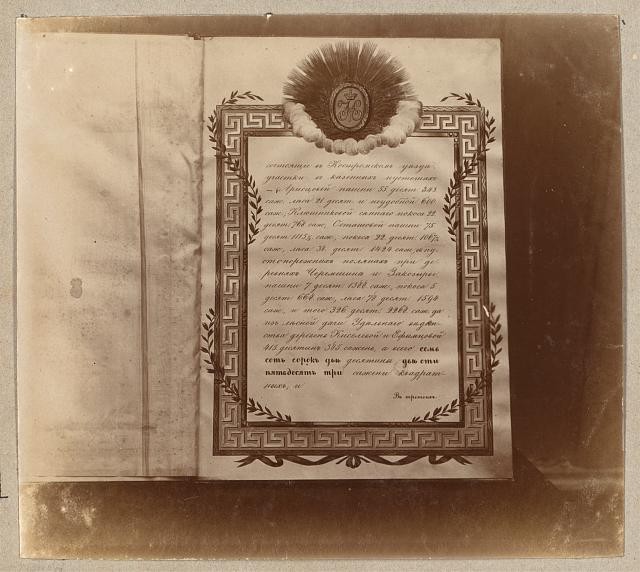 состоящіе въ Костромскомъ уѣздѣ
участки въ казенныхъ пустошахъ
пашни 55 десят. 343
саж., лѣса 21 десят. и неудобной 600
саж.; сѣннаго покоса 22
десят. 760 саж., пашни 75
десят. 1115½ саж., покоса 22 десят. 1067½
саж., лѣса 38 десят. 1424 саж. и въ
полянахъ при де-
ревняхъ Черемшина и
пашни 7 десят. 1380 саж., покоса 5
десят. 660 саж., лѣса 78 десят. 1594
саж. и того 326 десят. 2268 саж. да
изъ лѣсной дачи Удѣльнаго вѣдом-
ства деревень Киселевой и Ефимцовой
415 десятинъ 385 саженъ, а всего семь
сотъ сорокъ двѣ десятины двѣсти
пятьдесятъ три сажени квадрат-
ныхъ, и
Въ третьихъ.